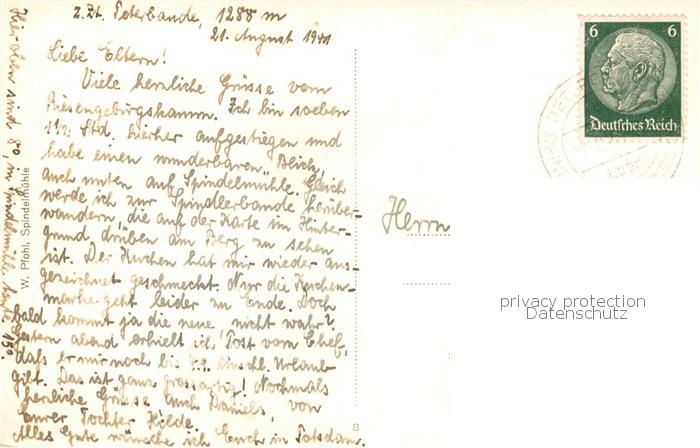 z. Zt. Peterbaude, 1288 m
21. August 1941
Liebe Eltern!
Viele herzliche Grüsse vom
Riesengebirgskamm. Ich bin soeben
1½ Std. hierher aufgestiegen und
habe einen wunderbaren Blick,
auch unten auf Spindelmühle. Gleich
werde ich zur Spindlerbaude herüber-
wandern, die auf der Karte im Hinter-
grund drüben am Berg zu sehen
ist. Der Kuchen hat mir wieder aus-
gezeichnet geschmeckt. Nur die Kuchen-
marke geht leider zu Ende. Doch
bald kommt ja die neue, nicht wahr?
Gestern abend erhielt ich Post vom Chef,
daß er mir noch bis einschl. Urlaub
gibt. Das ist ganz grossartig! Nochmals
herzliche Grüsse auch Daniels, von
Eurer Tochter Hilde.
Alles Gute wünsche ich Euch in Potsdam.
Hier oben sind 8°, in Spindelmühle heute 15°.
W. Pfohl, Spindelmühle
B
6 6
Deutsches Reich
Herrn
privacy protection
Datenschutz